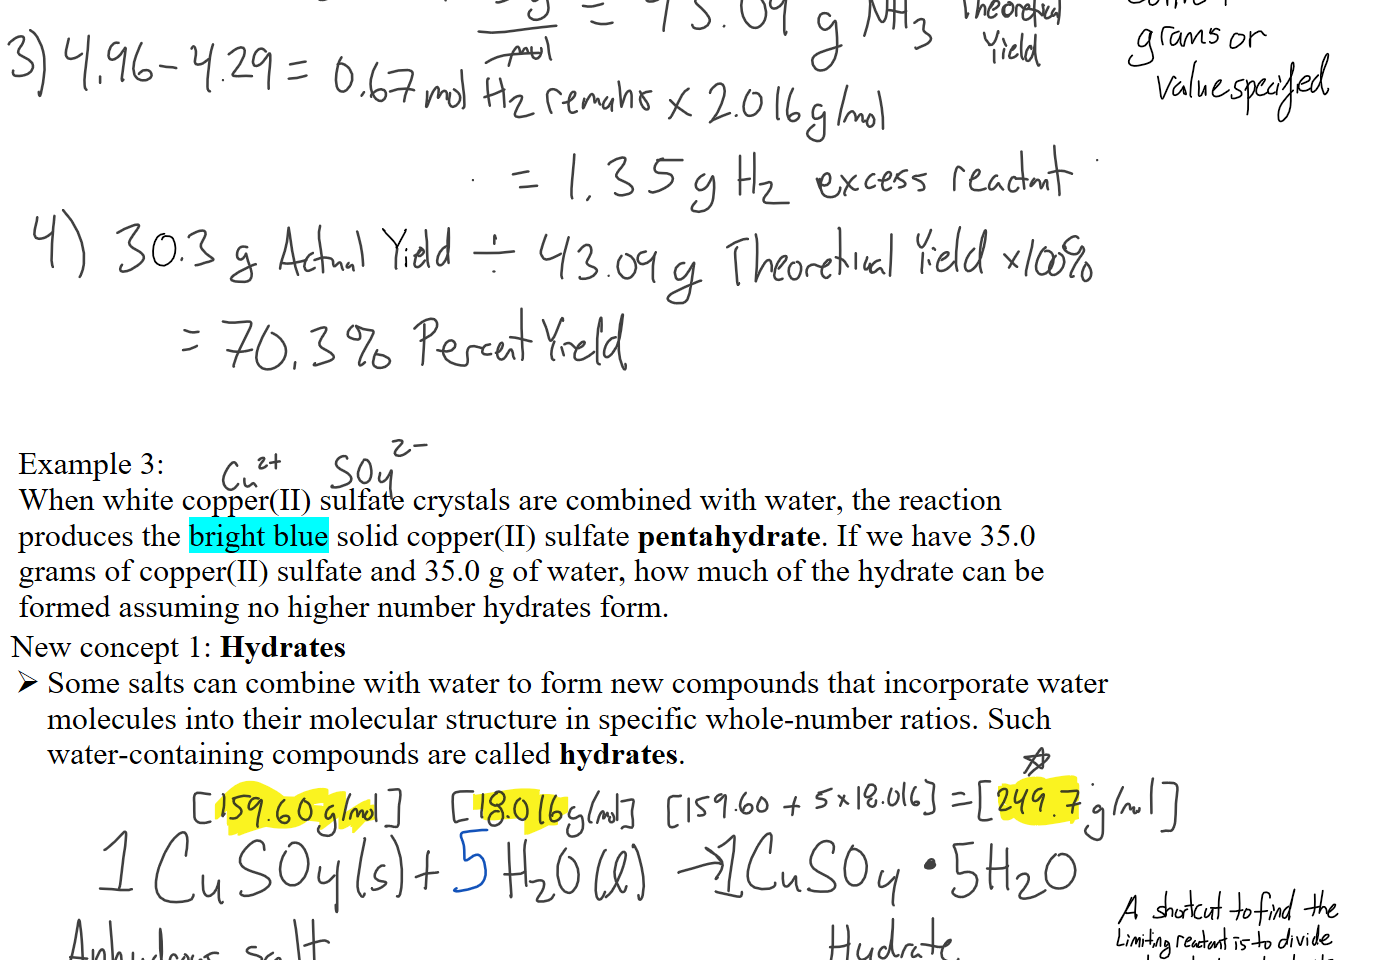 g = 43.09 g NH3 Theoretical
mol Yield
grams or
value specified
3) 4.96 - 4.29 = 0.67 mol H2 remains x 2.016 g/mol
= 1.35 g H2 excess reactant
4) 30.3 g Actual Yield ÷ 43.09 g Theoretical Yield x100%
= 70.3% Percent Yield
Example 3: Cu2+ SO4 2-
When white copper(II) sulfate crystals are combined with water, the reaction
produces the bright blue solid copper(II) sulfate pentahydrate. If we have 35.0
grams of copper(II) sulfate and 35.0 g of water, how much of the hydrate can be
formed assuming no higher number hydrates form.
New concept 1: Hydrates
➤ Some salts can combine with water to form new compounds that incorporate water
molecules into their molecular structure in specific whole-number ratios. Such
water-containing compounds are called hydrates.
[159.60 g/mol] [18.016 g/mol] [159.60 + 5x18.016] = [249.7 g/mol]
1 CuSO4(s) + 5 H2O(l) → 1 CuSO4 • 5H2O
Anhydrous salt Hydrate
A shortcut to find the
Limiting reactant is to divide